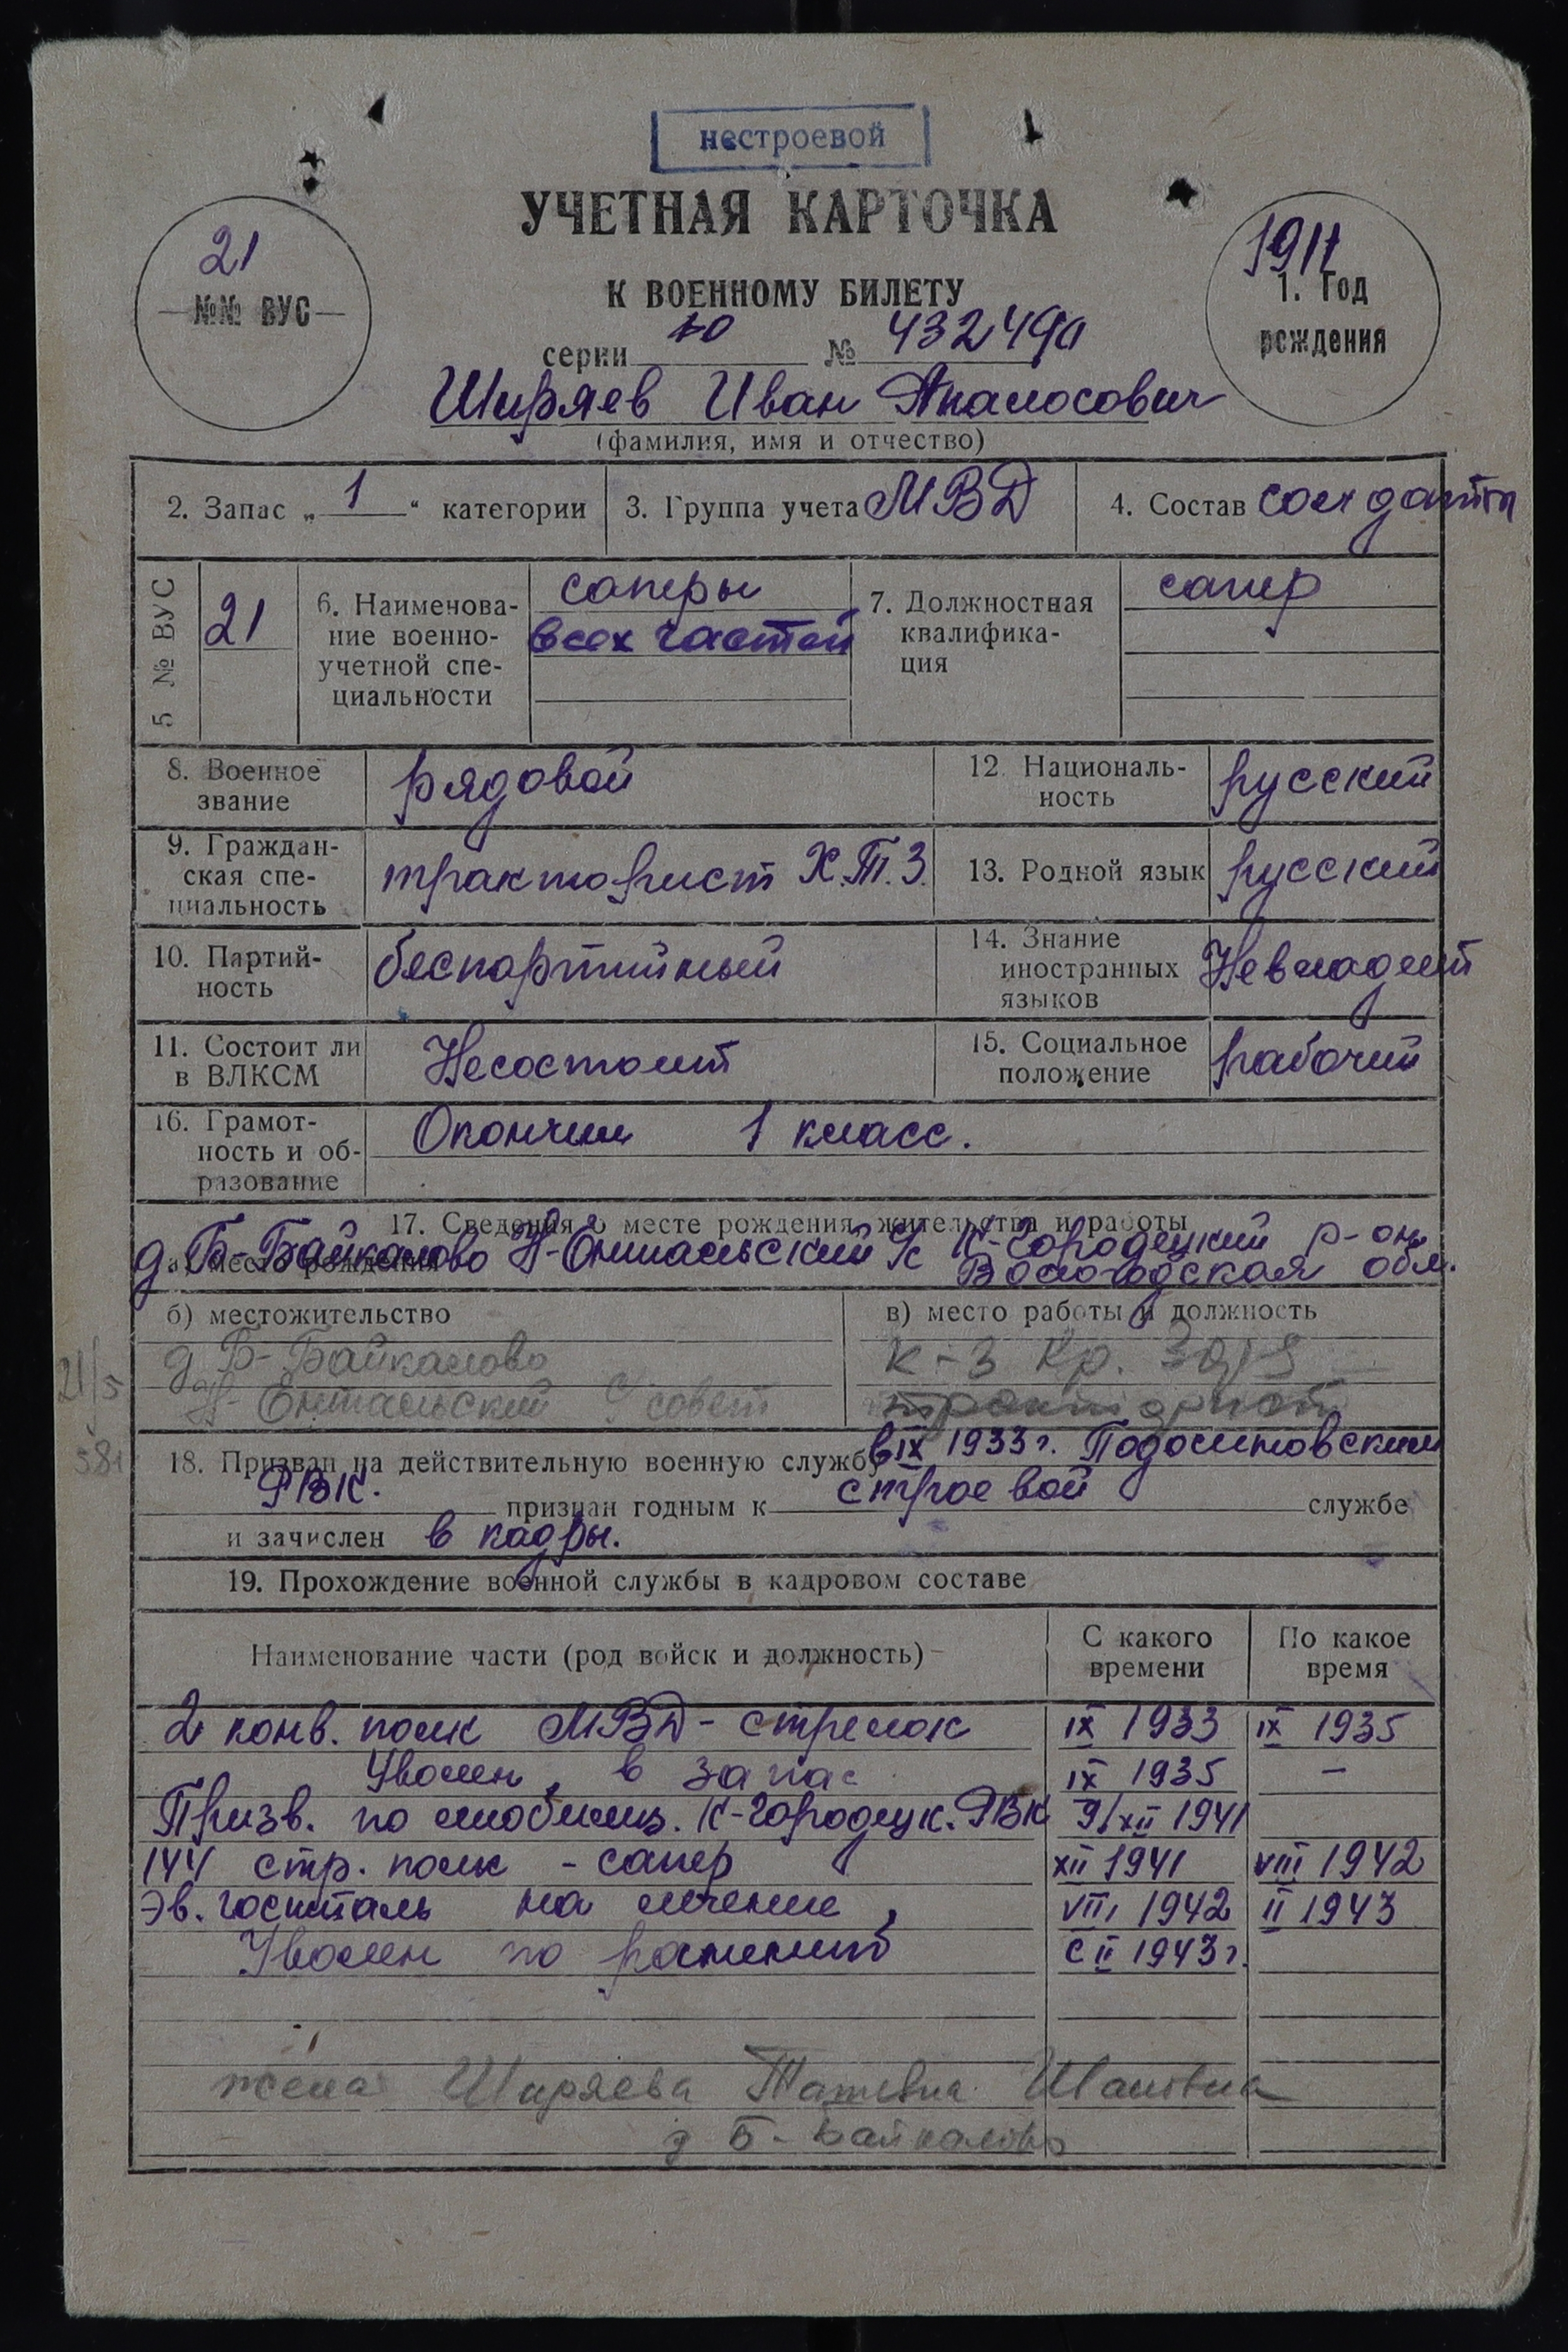 нестроевой
УЧЕТНАЯ КАРТОЧКА
К ВОЕННОМУ БИЛЕТУ
21
№№ ВУС
1911
1. Год
рождения
серии № 432490
Ширяев Иван Апалосович
(фамилия, имя и отчество)
2. Запас „ 1 “ категории
3. Группа учета МВД
4. Состав солдаты
5 № ВУС
21
6. Наименова-
ние военно-
учетной спе-
циальности
саперы
всех частей
7. Должностная
квалифика-
ция
сапер
8. Военное
звание
рядовой
12. Националь-
ность
русский
9. Граждан-
ская спе-
циальность
тракторист Х.Т.З.
13. Родной язык русский
10. Партий-
ность
беспартийный
14. Знание
иностранных
языков
Невладеет
11. Состоит ли
в ВЛКСМ
Несостоит
15. Социальное
положение
рабочий
16. Грамот-
ность и об-
разование
Окончил 1 класс.
17. Сведения о месте рождения, жительства и работы
а) место рождения
д. Б-Байкалово Н-Ентальский с/с К-Городецкий р-он
Вологодская обл.
б) местожительство
д Б-Байкалово
Н-Ентальский с/совет
в) место работы и должность
к-з Кр. Заря
тракторист
21/5
581
18. Призван на действительную военную службу в IX 1933 г. Подосиновским
РВК. признан годным к строевой службе
и зачислен в кадры.
19. Прохождение военной службы в кадровом составе
Наименование части (род войск и должность)
С какого
времени
По какое
время
2 конв. полк МВД - стрелок IX 1933 IX 1935
Уволен в запас IX 1935 —
Призв. по мобилиз. К-Городецк. РВК 9/XII 1941
144 стр. полк - сапер XII 1941 VIII 1942
Эв. госпиталь на лечение VIII 1942 II 1943
Уволен по ранению с II 1943 г.
жена Ширяева Ивановна
д Б-Байкалово